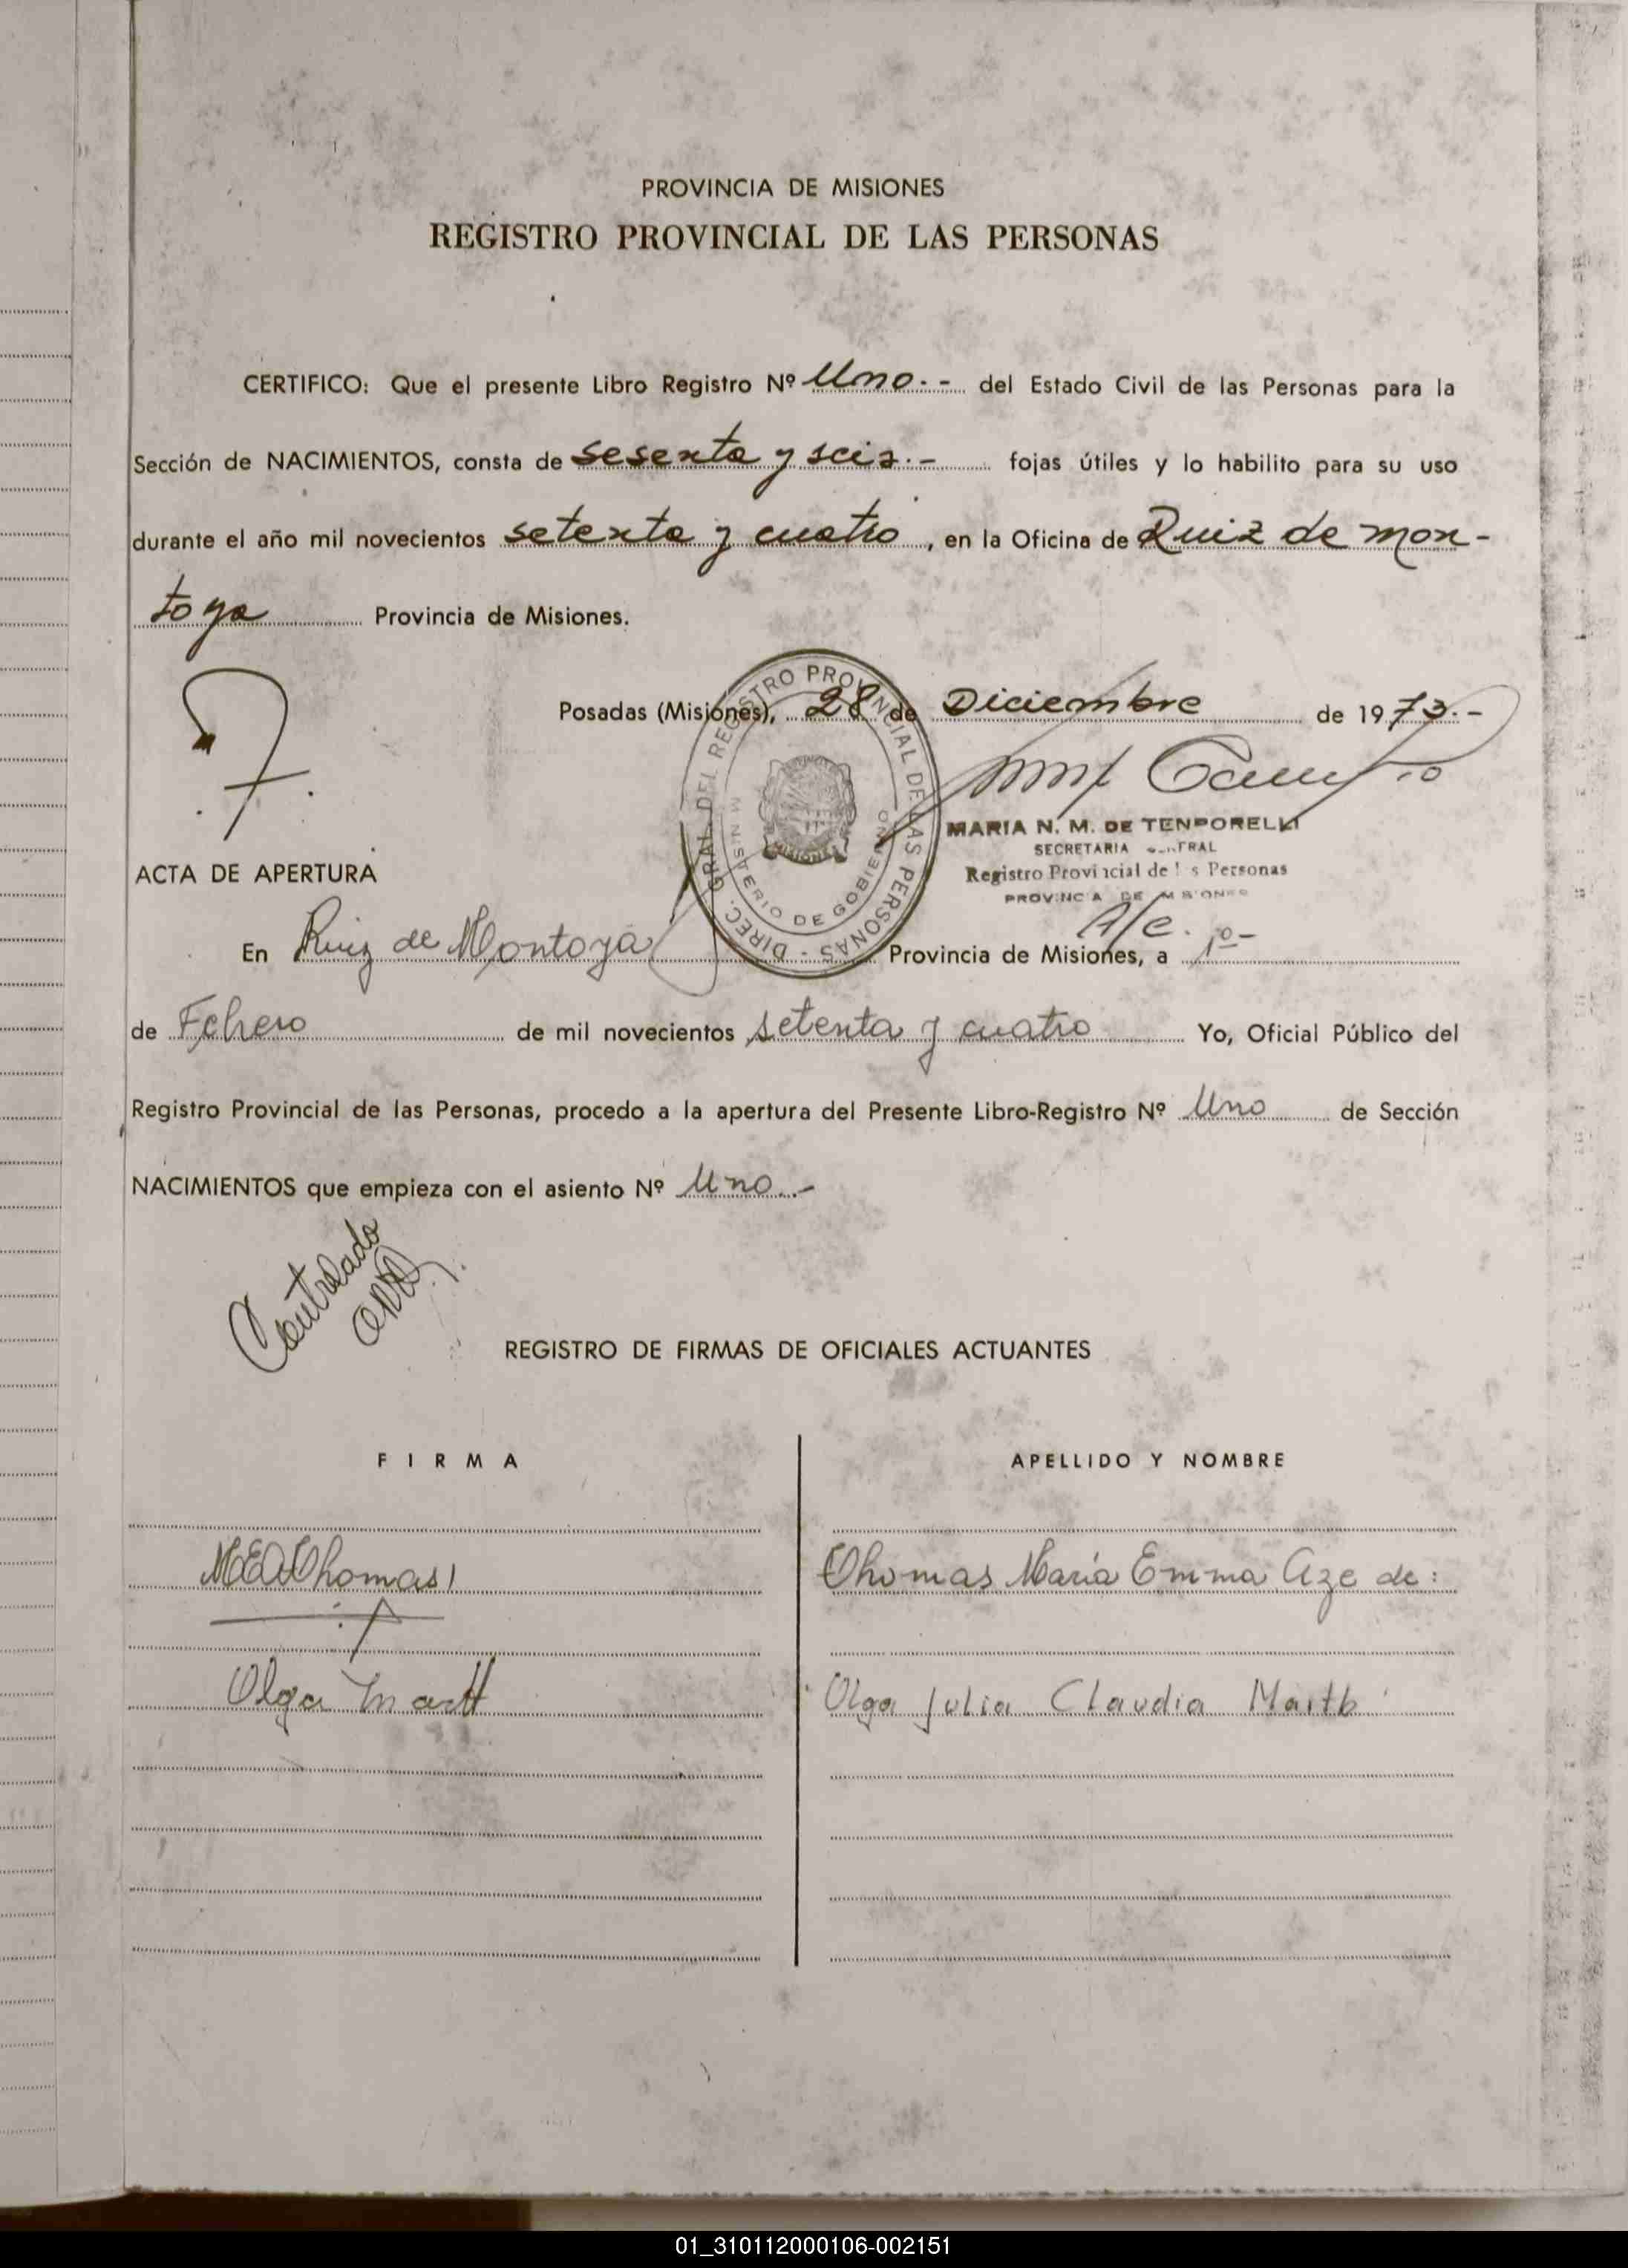 PROVINCIA DE MISIONES
REGISTRO PROVINCIAL DE LAS PERSONAS
CERTIFICO: Que el presente Libro Registro Nº Uno.- del Estado Civil de las Personas para la
Sección de NACIMIENTOS, consta de sesenta y seis.- fojas útiles y lo habilito para su uso
durante el año mil novecientos setenta y cuatro, en la Oficina de Ruiz de Mon-
toya Provincia de Misiones.
Posadas (Misiones), 28 de Diciembre de 1973.-
DIREC. GRAL DEL REGISTRO PROVINCIAL DE LAS PERSONAS -
MINISTERIO DE GOBIERNO
MISIONES
MARIA N. M. DE TENPORELLI
SECRETARIA
Registro Provincial de Personas
PROVINCIA DE MISIONES
A/c.
ACTA DE APERTURA
En Ruiz de Montoya Provincia de Misiones, a 1º-
de Febrero de mil novecientos setenta y cuatro Yo, Oficial Público del
Registro Provincial de las Personas, procedo a la apertura del Presente Libro-Registro Nº Uno de Sección
NACIMIENTOS que empieza con el asiento Nº Uno.-
Controlado
REGISTRO DE FIRMAS DE OFICIALES ACTUANTES
FIRMA APELLIDO Y NOMBRE
MEAThomas Thomas María Emma Aze de:
Olga Martt Olga Julia Claudia
01_310112000106-002151